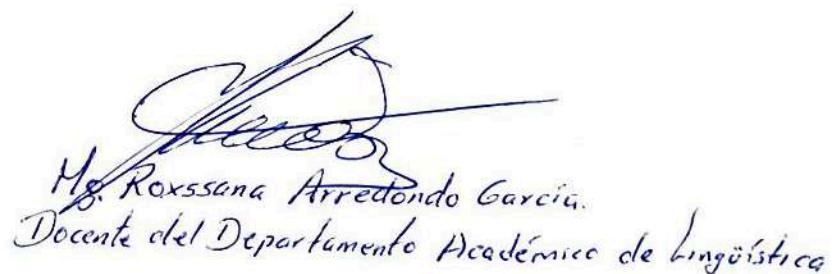 Mg. Roxssana Arredondo García.
Docente del Departamento Académico de Lingüística